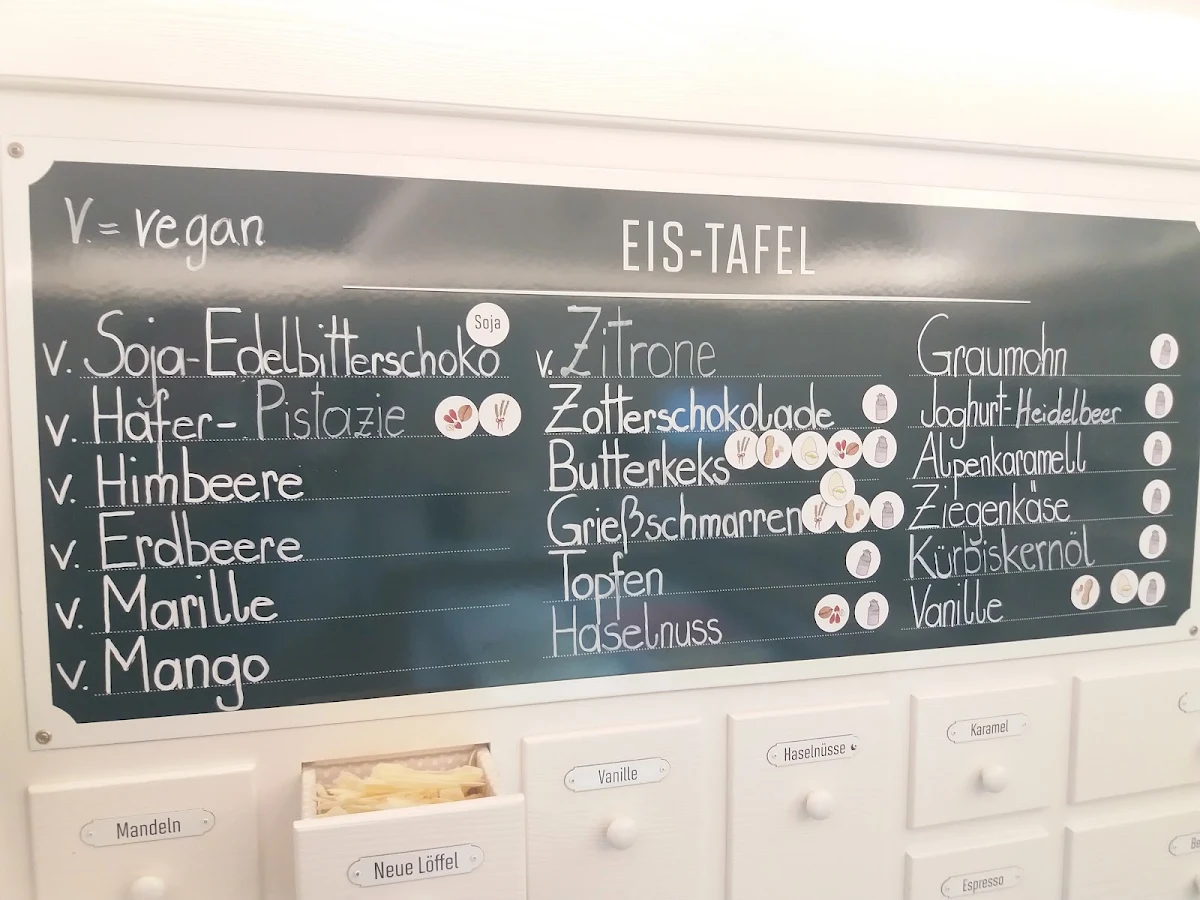 V.= vegan
EIS-TAFEL
v. Soja-Edelbitterschoko Soja
v. Hafer-Pistazie
v. Himbeere
v. Erdbeere
v. Marille
v. Mango
v. Zitrone
Zotterschokolade
Butterkeks
Grießschmarren
Topfen
Haselnuss
Graumohn
Joghurt-Heidelbeer
Alpenkaramell
Ziegenkäse
Kürbiskernöl
Vanille
Mandeln
Neue Löffel
Vanille
Haselnüsse
Karamel
Espresso